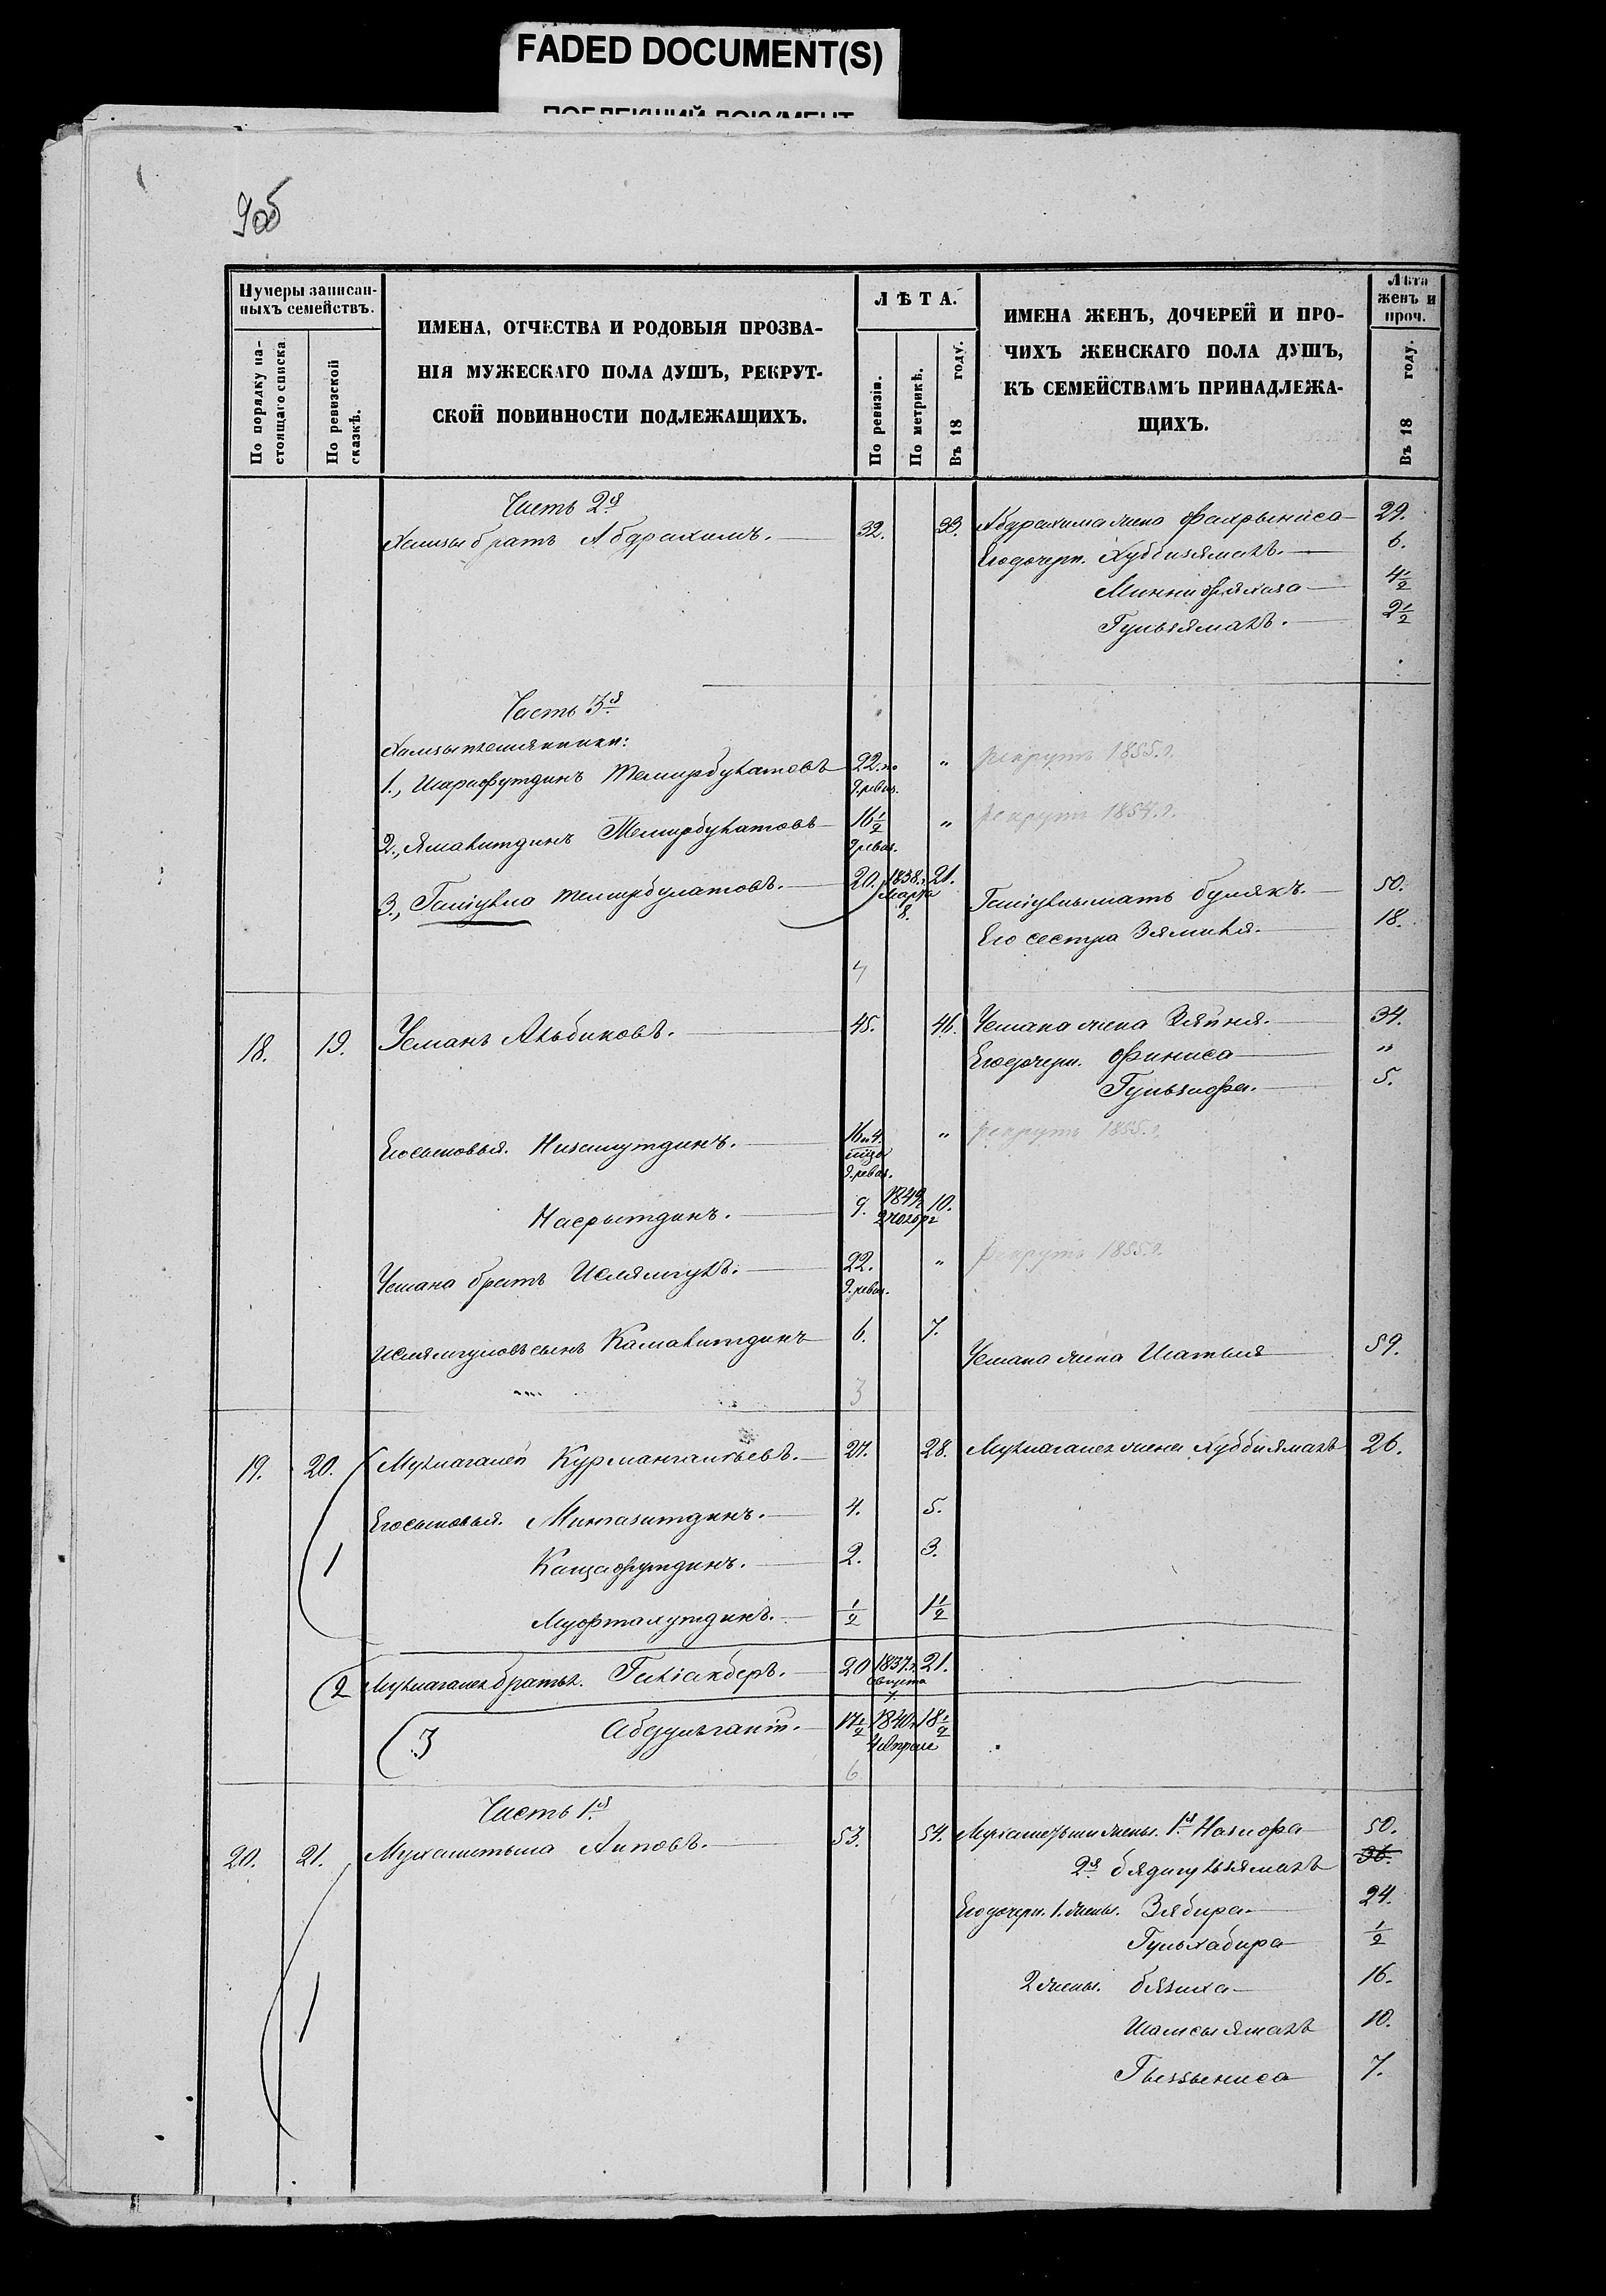 FADED DOCUMENT(S)
ПОБЛЕКШИЙ ДОКУМЕНТ
9об
Нумеры записан-
ныхъ семействъ.
По порядку на-
стоящаго списка
По ревизской
сказкѣ.
ИМЕНА, ОТЧЕСТВА И РОДОВЫЯ ПРОЗВА-
НІЯ МУЖЕСКАГО ПОЛА ДУШЪ, РЕКРУТ-
СКОЙ ПОВИННОСТИ ПОДЛЕЖАЩИХЪ.
ЛѢТА.
По ревизіи.
По метрикѣ.
Въ 18 году.
ИМЕНА ЖЕНЪ, ДОЧЕРЕЙ И ПРО-
ЧИХЪ ЖЕНСКАГО ПОЛА ДУШЪ,
КЪ СЕМЕЙСТВАМЪ ПРИНАДЛЕЖА-
ЩИХЪ.
Лѣта
женъ и
проч.
Въ 18 году.
Часть 2я
Хамзы братъ Абдрахимъ. 32. 33. Абдрахима жена Фахрыниса 29.
Его дочери. Хуббизямалъ. 6.
Миннифяхиза 4 1/2
Гульзямалъ. 2 1/2
Часть 3я
Хамзы племянники:
1., Шарафутдинъ Темирбулатовъ 22. по 9 ревиз. " рекрутъ 1855. г.
2., Ямалитдинъ Темирбулатовъ 16 1/2 9 ревиз. " рекрутъ 1854. г.
3., Галіулла Темирбулатовъ. 20. 1838. г. Марта 8. 21. Галіуллы мать Булякъ. 50.
Его сестра Зямиля. 18.
4
18. 19. Усманъ Альбиковъ. 45. 46. Усмана жена Зяйня. 34.
Его дочери. Финиса "
Гульзифа. 5.
Его сыновья. Низамутдинъ. 16 и 4. мцзв 9. ревиз. " рекрутъ 1855. г.
Насрытдинъ. 9. 1849 2 Ноября 10.
Усмана братъ Ислямгулъ. 22. 9. ревиз. " рекрутъ 1855. г.
Ислямгуловъ сынъ Камалитдинъ 6. 7. Усмана жена Шатыя 59.
3
19. 20. Муллагалей Курмангалѣевъ. 27. 28. Муллагалея жена Хуббиямалъ 26.
Его сыновья. Мингазитдинъ. 4. 5.
1 Кашафутдинъ. 2. 3.
Муфтахутдинъ. 1/2 1 1/2
2 Муллагалея братья. Гиліакберъ. 20 1837. г. Августа 7. 21.
3 Абдулгани. 17 1/2 1840. г. 4 Апреля 18 1/2
6
Часть 1я
20. 21. Мухаметьша Аиповъ. 53. 54. Мухаметьши жены. 1я Назифа 50.
2я Бядигульзямалъ 36.
Его дочери. 1. жены. Зябира 24.
Гульхабира 1/2
1 2 жены. Бязиха 16.
Шамсыямалъ 10.
Гыззыниса 7.